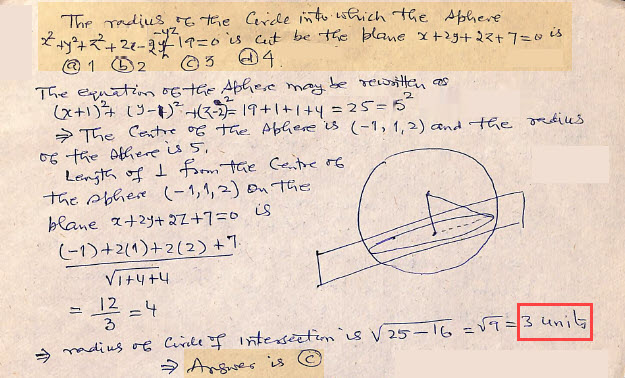 The radius of the Circle into which the Sphere
x²+y²+z²+2x-2y-4z-19=0 is cut be the plane x+2y+2z+7=0 is
ⓐ 1 ⓑ 2 ⓒ 3 ⓓ 4.
The equation of the Sphere may be rewritten as
(x+1)²+(y-1)²+(z-2)²= 19+1+1+4 = 25 = 5²
⇒ The Centre of the Sphere is (-1, 1, 2) and the radius
of the Sphere is 5.
Length of ⊥ from the Centre of
the sphere (-1,1,2) on the
plane x+2y+2z+7=0 is
(-1)+2(1)+2(2)+7
√1+4+4
= 12/3 = 4
⇒ radius of Circle of Intersection is √25-16 = √9 = 3 units
⇒ Answer is ⓒ